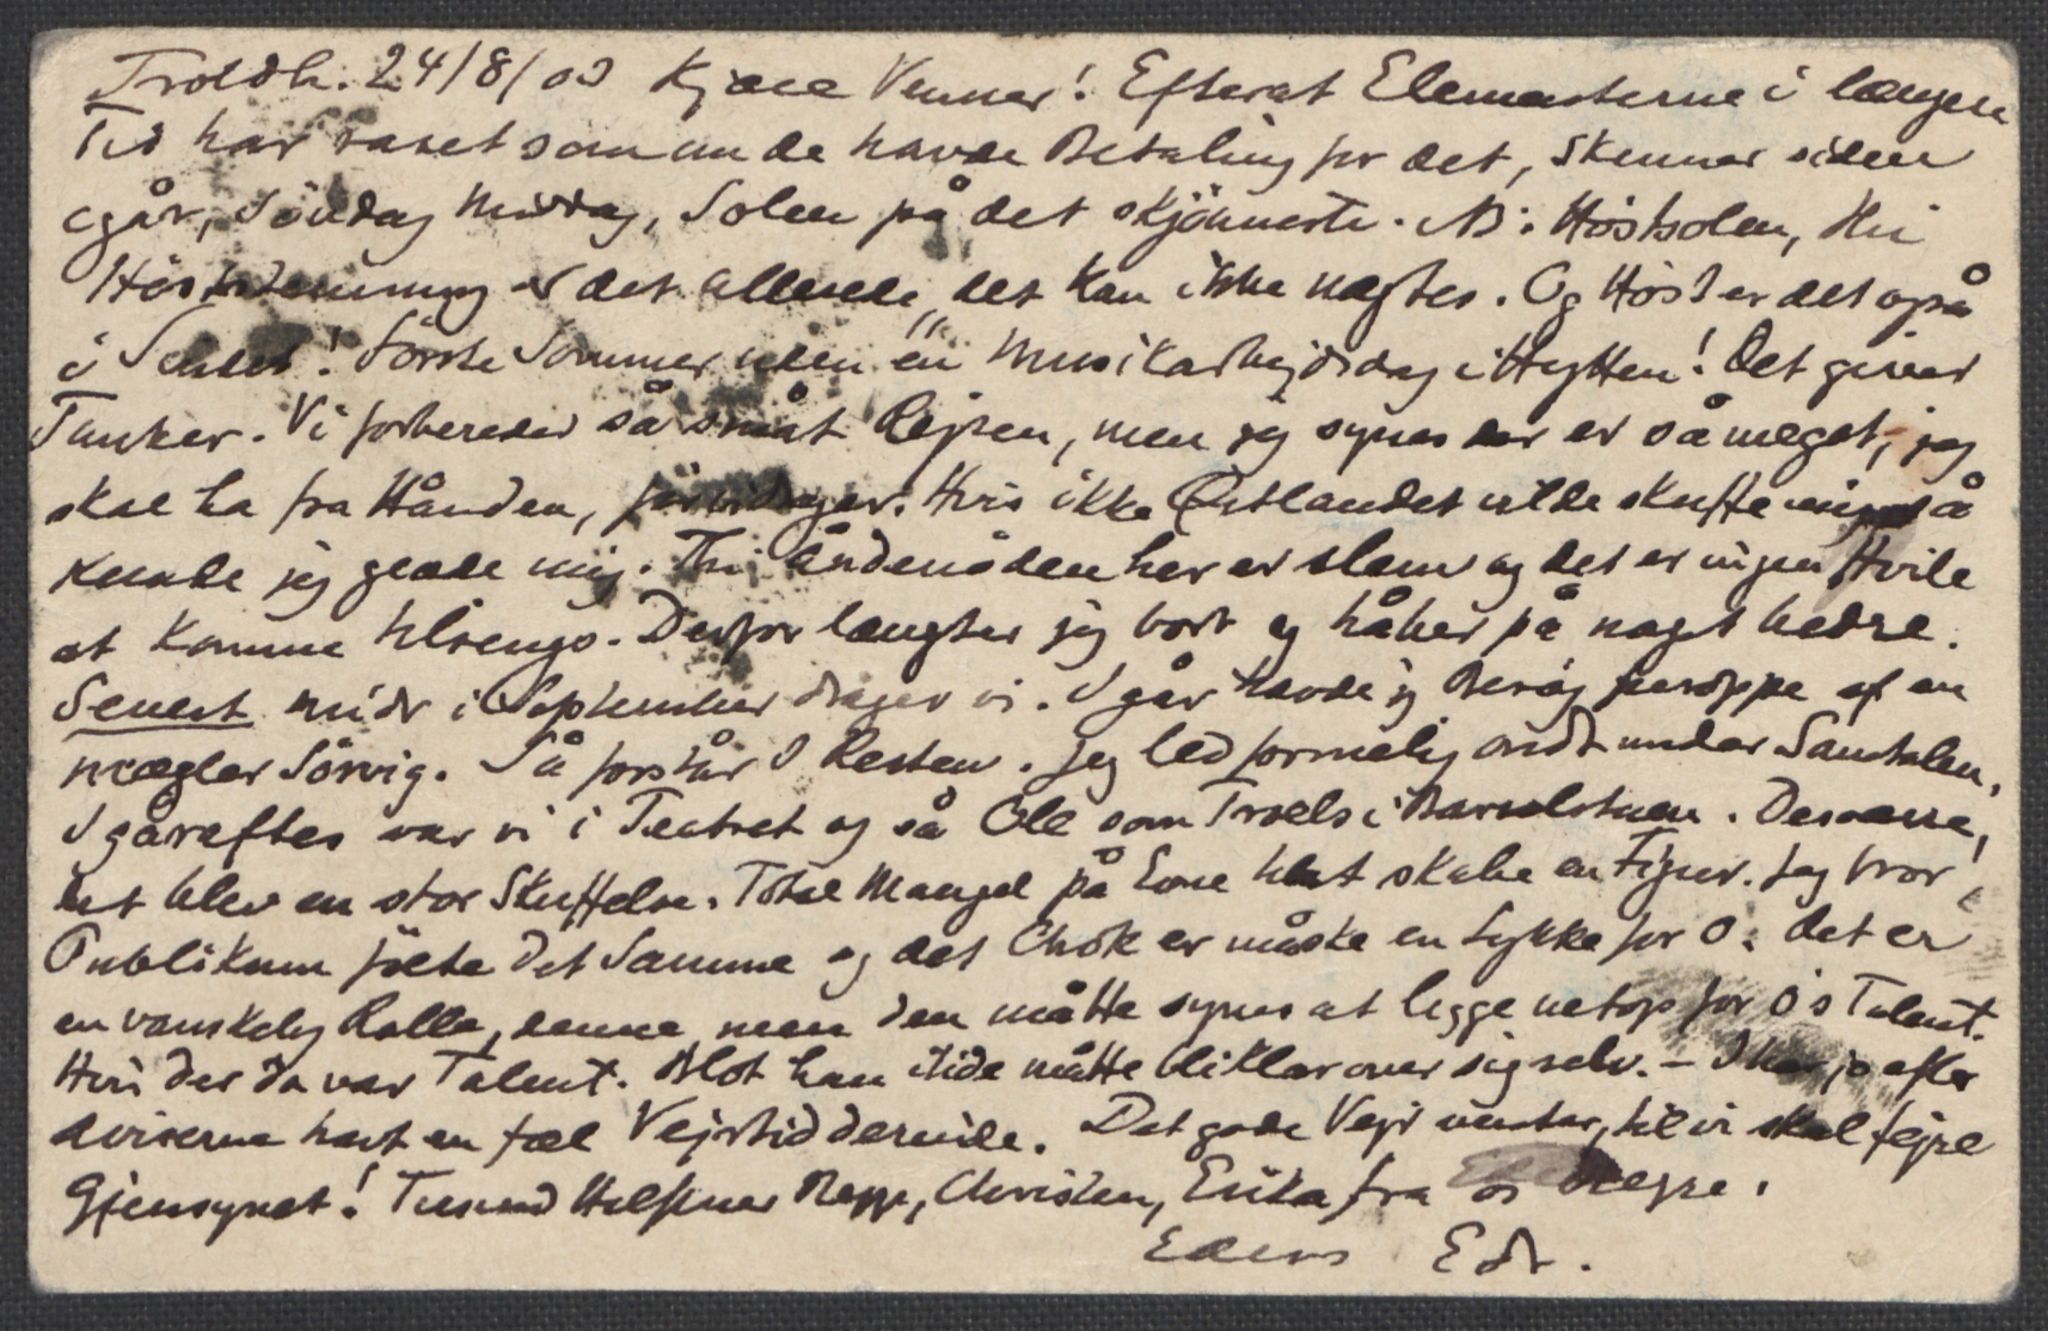 Troldh. 24/8/03 Kjære Venner! Efterat Elementerne i længere
Tid har raset som om de havde Betaling for det, skinner siden
igår, Söndag Middag, Solen på det skjönneste. NB: Höstsolen, thi
Höststemning er det allerede, det kan ikke nægtes. Og Höst er det også
i Sindet! Förste Sommer uden en Musikarbejdsdag i Hytten! Det giver
Tanker. Vi forbereder så småt Rejsen, men jeg synes der er så meget, jeg
skal ha fra Hånden, för vi drager. Hvis ikke Østlandet vilde skuffe mig så
kunde jeg glæde mig. Thi Åndenöden her er slem og det er ingen Hvile
at komme tilsengs. Derfor længter jeg bort og håber på noget bedre.
Senest Midt i September drager vi. Igår havde jeg Besög heroppe af en
mægler Sörvig. Så forstår I Resten. Jeg led formelig ondt under Samtalen.
Igåraftes var vi i Teatret og så Ole som Troels i Barselstuen. Desværre,
det blev en stor Skuffelse. Total Mangel på Evne til at skabe en Figur. Jeg tror,
Publikum fölte det Samme og det Chok er måske en Lykke for O. det er
en vanskelig Rolle, denne men den måtte synes at ligge netop for O's Talent.
Hvis der da var Talent. Blot han itide måtte bli klar over sig selv. – I har jo efter
Aviserne havt en fæl Vejrtid derinde. Det gode Vejr venter, til vi skal fejre
Gjensynet! Tusind Hilsener Rapp, Christen, Erika fra os Begge.
Eders Edv.